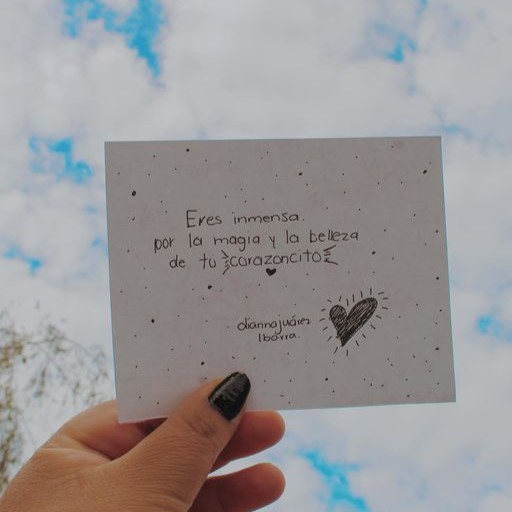 Eres inmensa.
por la magia y la belleza
de tu corazoncito
diannajuárez
Ibarra.